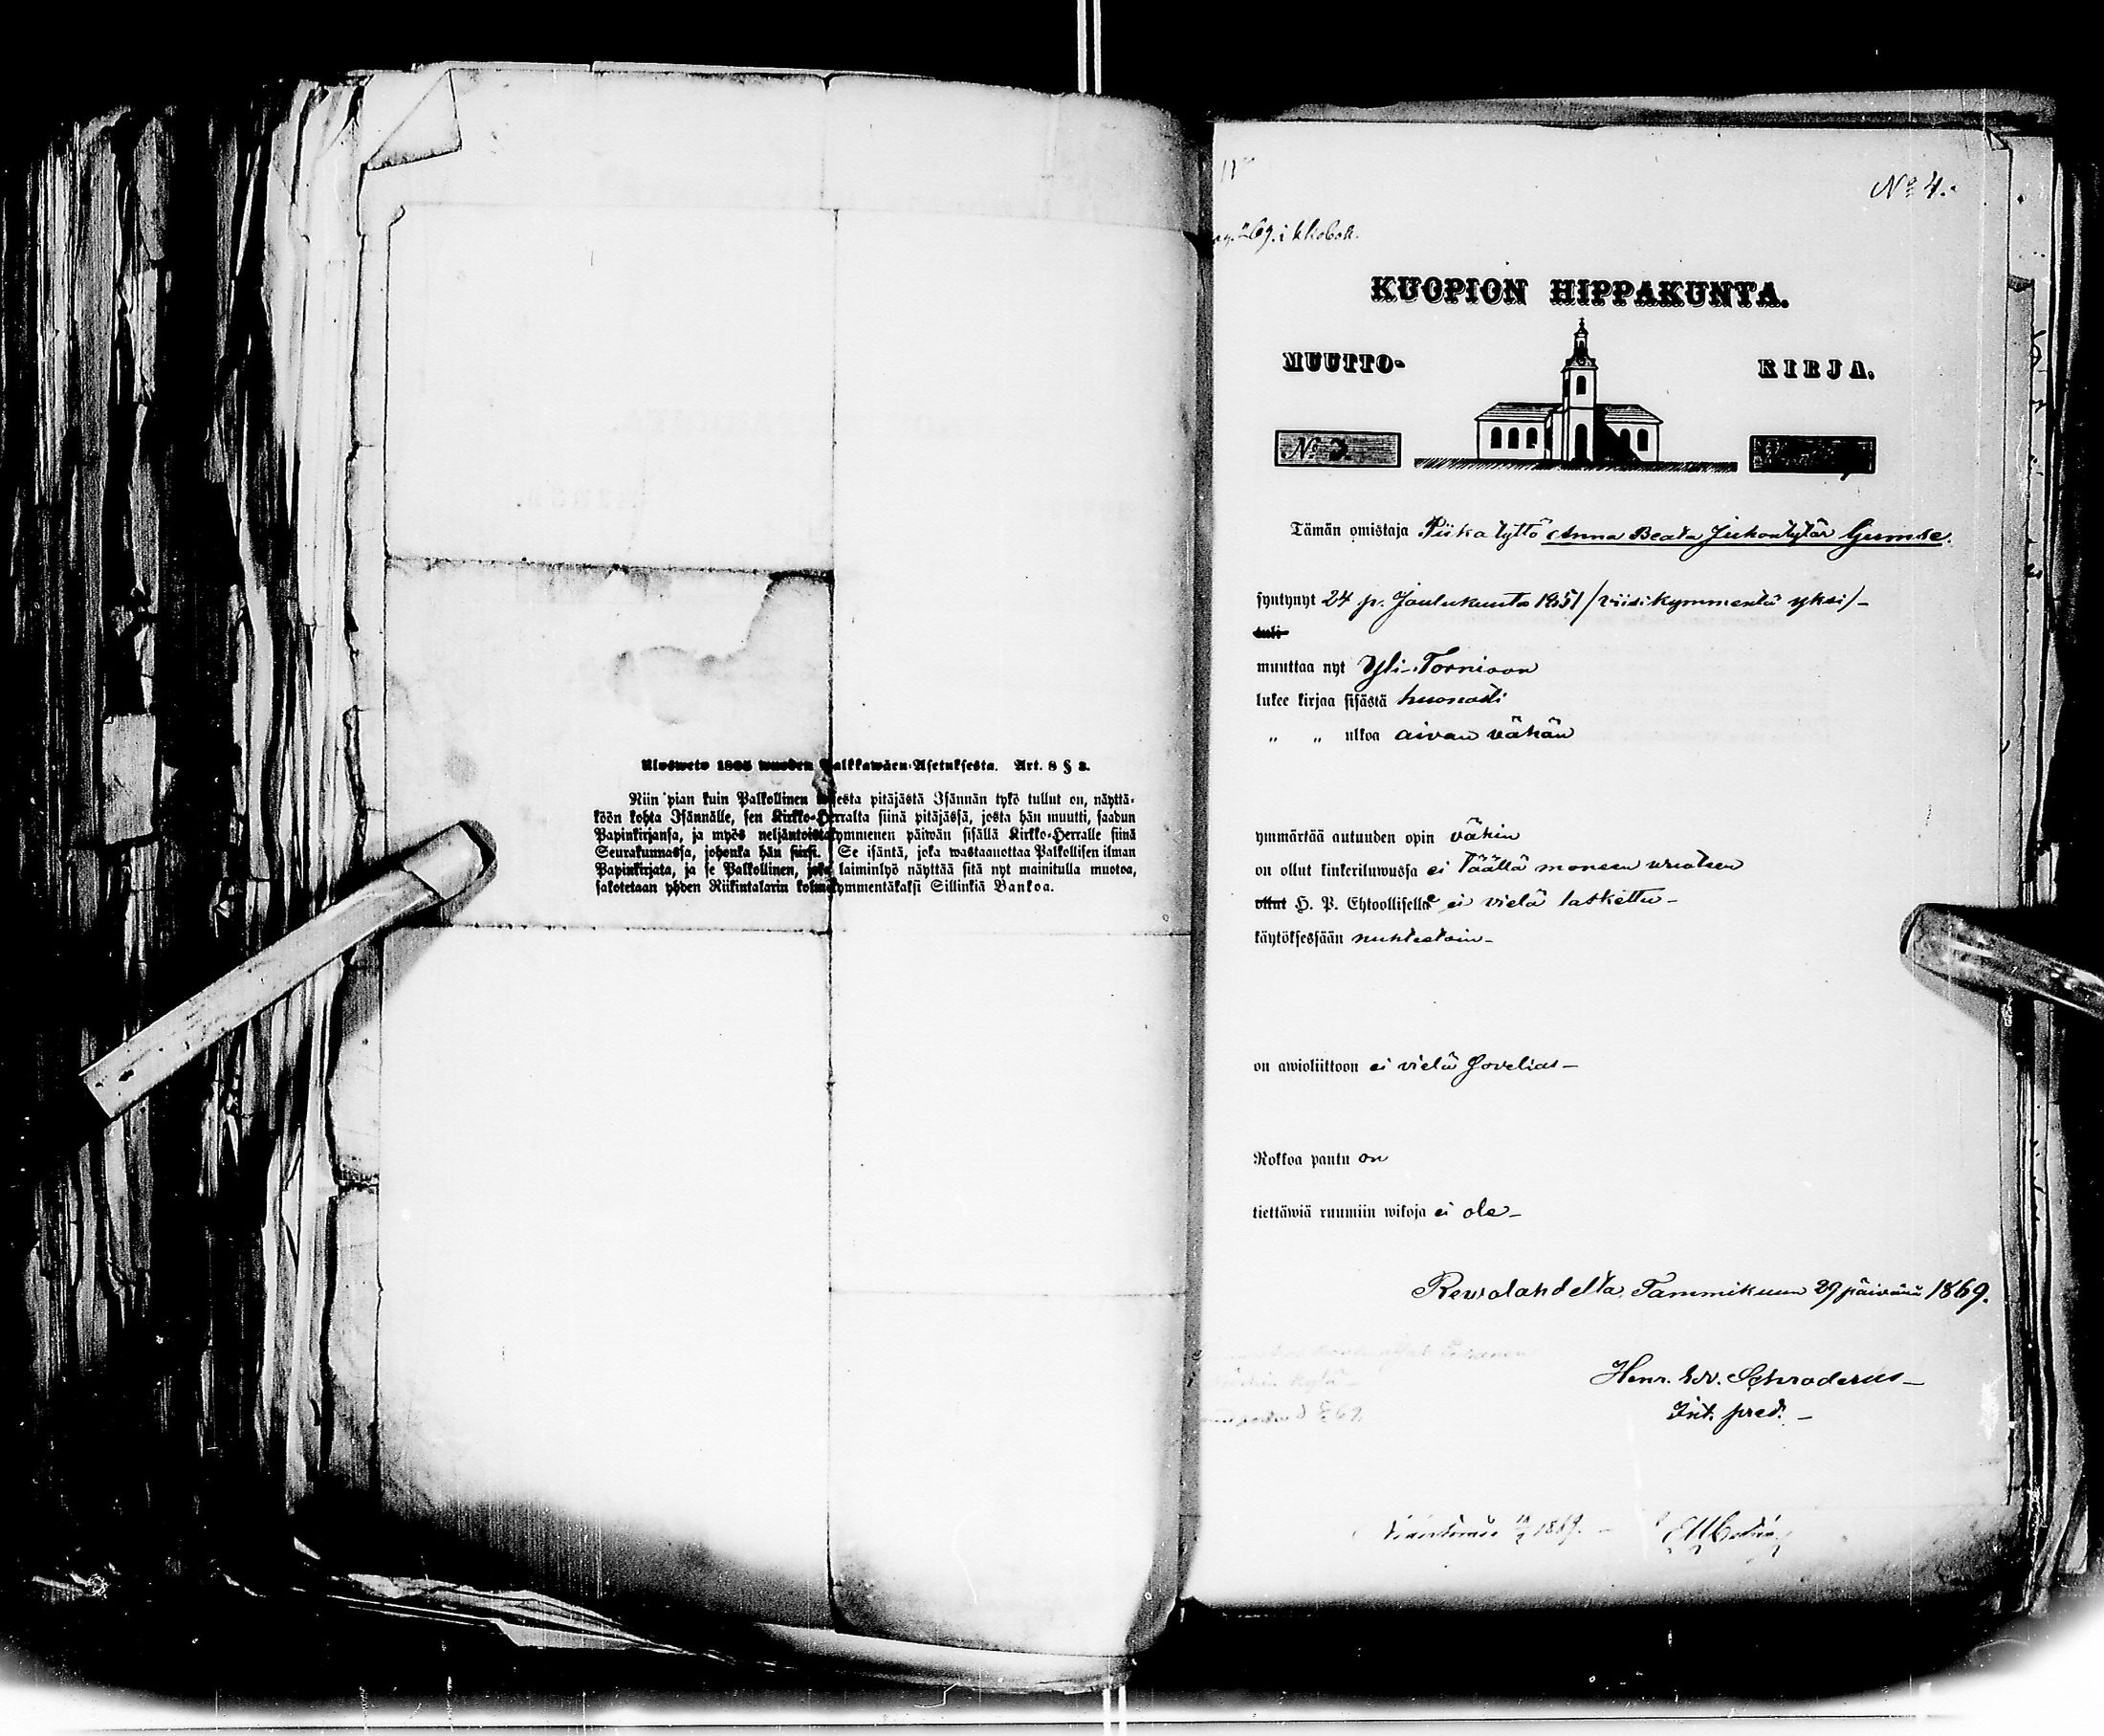 Ulosweto 1805 wuoden Palkkawäen-Asetuksesta. Art. 8 § 3.
Niin pian kuin Palkollinen toisesta pitäjästä Isännän tykö tullut on, näyttä-
köön kohta Isännälle, sen Kirkko-Herralta siinä pitäjässä, josta hän muutti, saadun
Papinkirjansa, ja myös neljäntoistakymmenen päiwän sisällä Kirkko-Herralle siinä
Seurakunnassa, johonka hän siirsi. Se isäntä, joka wastaanottaa Palkollisen ilman
Papinkirjata, ja se Palkollinen, joka laiminlyö näyttää sitä nyt mainitulla muotoa,
sakotetaan yhden Riikintalarin kolmekymmentäkaksi Sillinkiä Bankoa.
No 4.
269. i kkobok.
KUOPION HIPPAKUNTA.
MUUTTO- KIRJA.
No 3
Tämän omistaja Piika tyttö Anna Beata Juhontytär
syntynyt 24 p. Joulukuuta 1851 /viisikymmentä yksi/-
tuli
muuttaa nyt Yli-Tornioon
lukee kirjaa sisästä huonosti
" " ulkoa aivan vähän
ymmärtää autuuden opin vähin
on ollut kinkeriluwussa ei täällä moneen vuoteen
ollut H. P. Ehtoolliselle ei vielä laskettu-
käytöksessään nuhtetoin-
on awioliittoon ei vielä
Rokkoa pantu on
tiettäwiä ruumiin wikoja ei ole-
Revolahdella, Tammikuun 29 päivänä 1869.
Henr. Schroderus-
Int. pred. -
1869. -